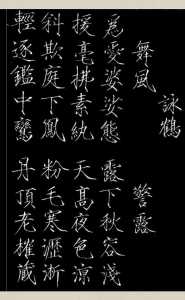 詠鶴
舞風
為愛婆娑態
援毫拂素紈
斜欺庭下鳳
輕逐鑑中鸞
警露
露下秋容淺
天高夜色涼
粉毛寒瀝淅
丹頂老摧藏